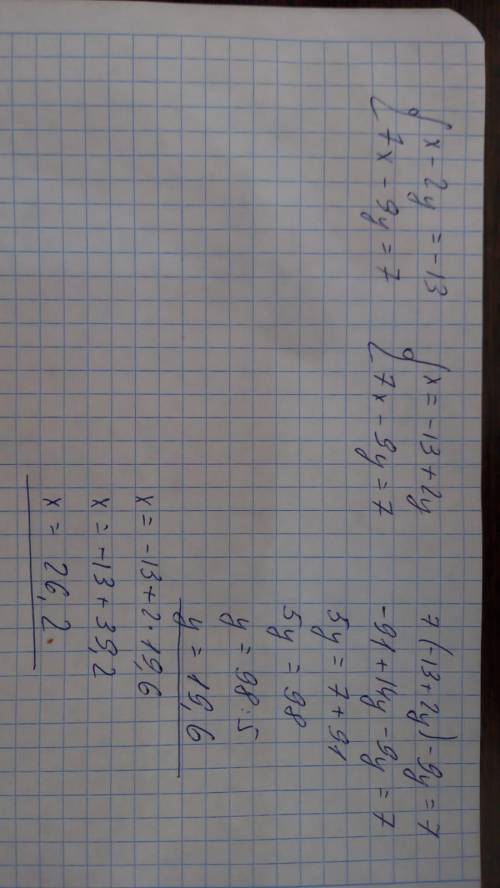 {x - 2y = -13
{7x - 9y = 7
{x = -13 + 2y
{7x - 9y = 7
7(-13+2y) - 9y = 7
-91 + 14y - 9y = 7
5y = 7 + 91
5y = 98
y = 98:5
y = 19,6
x = -13 + 2·19,6
x = -13 + 39,2
x = 26,2